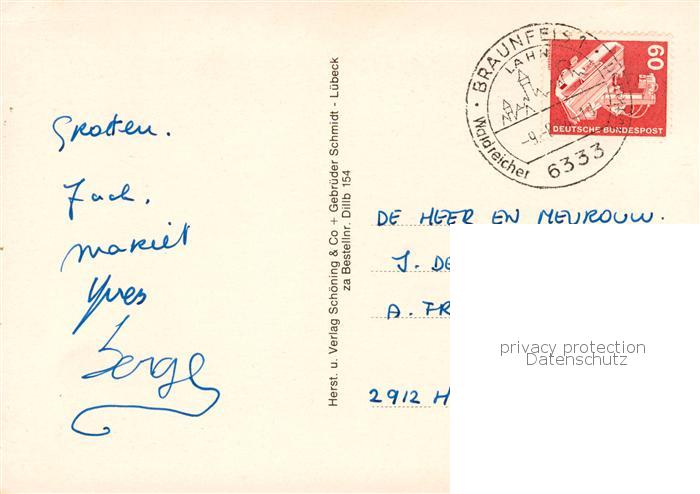 Groeten.
Jack.
Mariet
Yves
Serge
Herst. u. Verlag Schöning & Co + Gebrüder Schmidt - Lübeck
za Bestellnr. Dillb 154
BRAUNFELS
LAHN
-9.-8
Waldreicher
6333
60
DEUTSCHE BUNDESPOST
DE HEER EN MEVROUW.
J. DE
A. FR
2912 H
privacy protection
Datenschutz